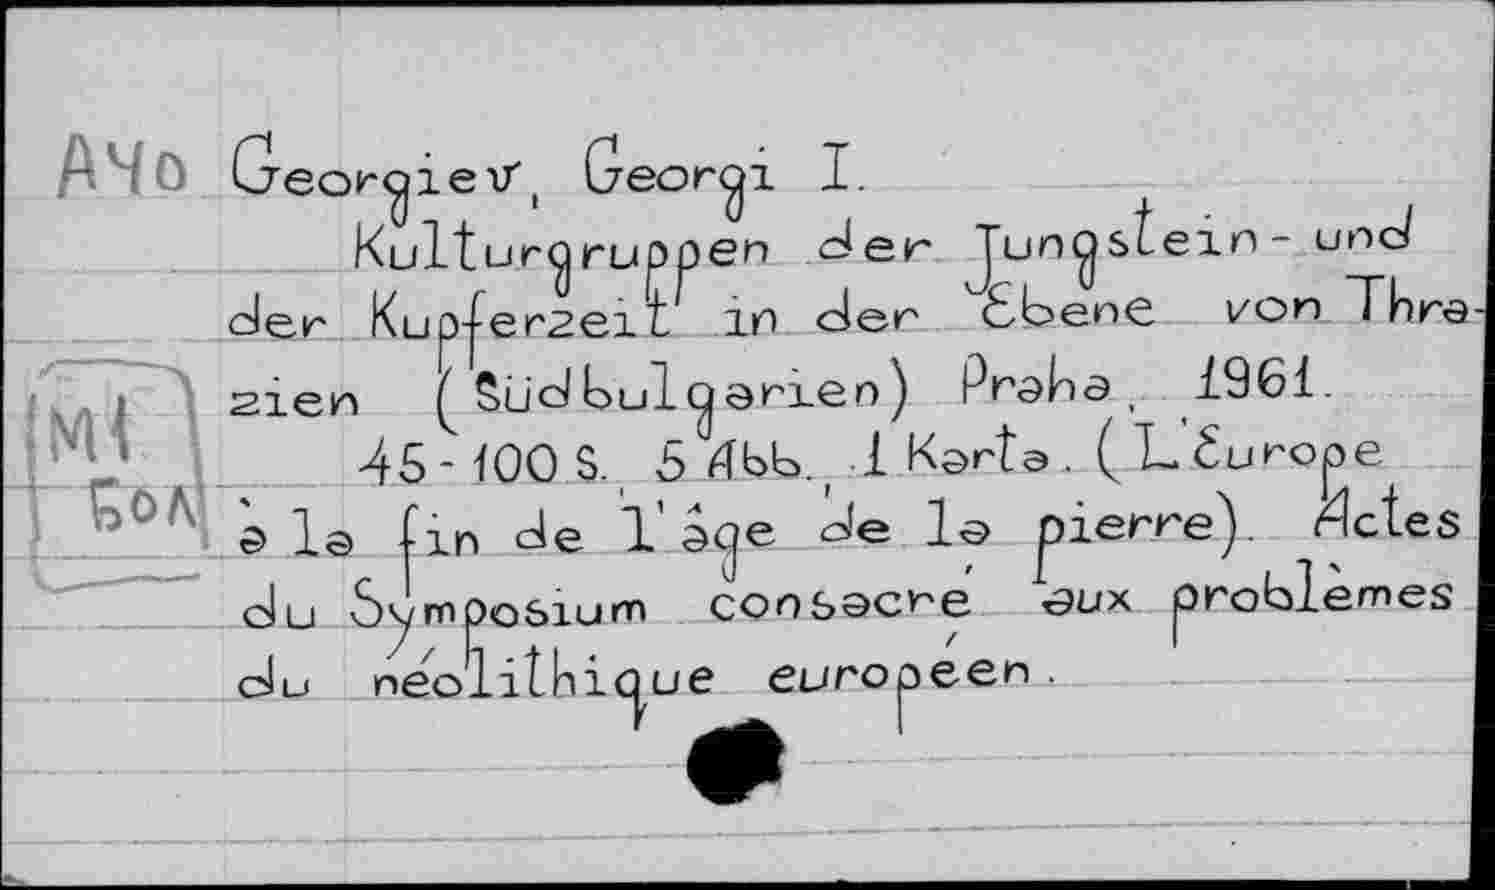 АЧо Georgiev, Georgi I.
Kulturgruppen der Jungstein- und
der Kupferzeit in der Ebene von Thra-
zien (Südbulgarien) Praha, 1961.
М1
45-100 S. 5 Abb., 1 Karta. (L'Europe
Бол
à la fin de l'âge de la pierre). Actes
du Symposium consacré aux problèmes
du néolithique européen.